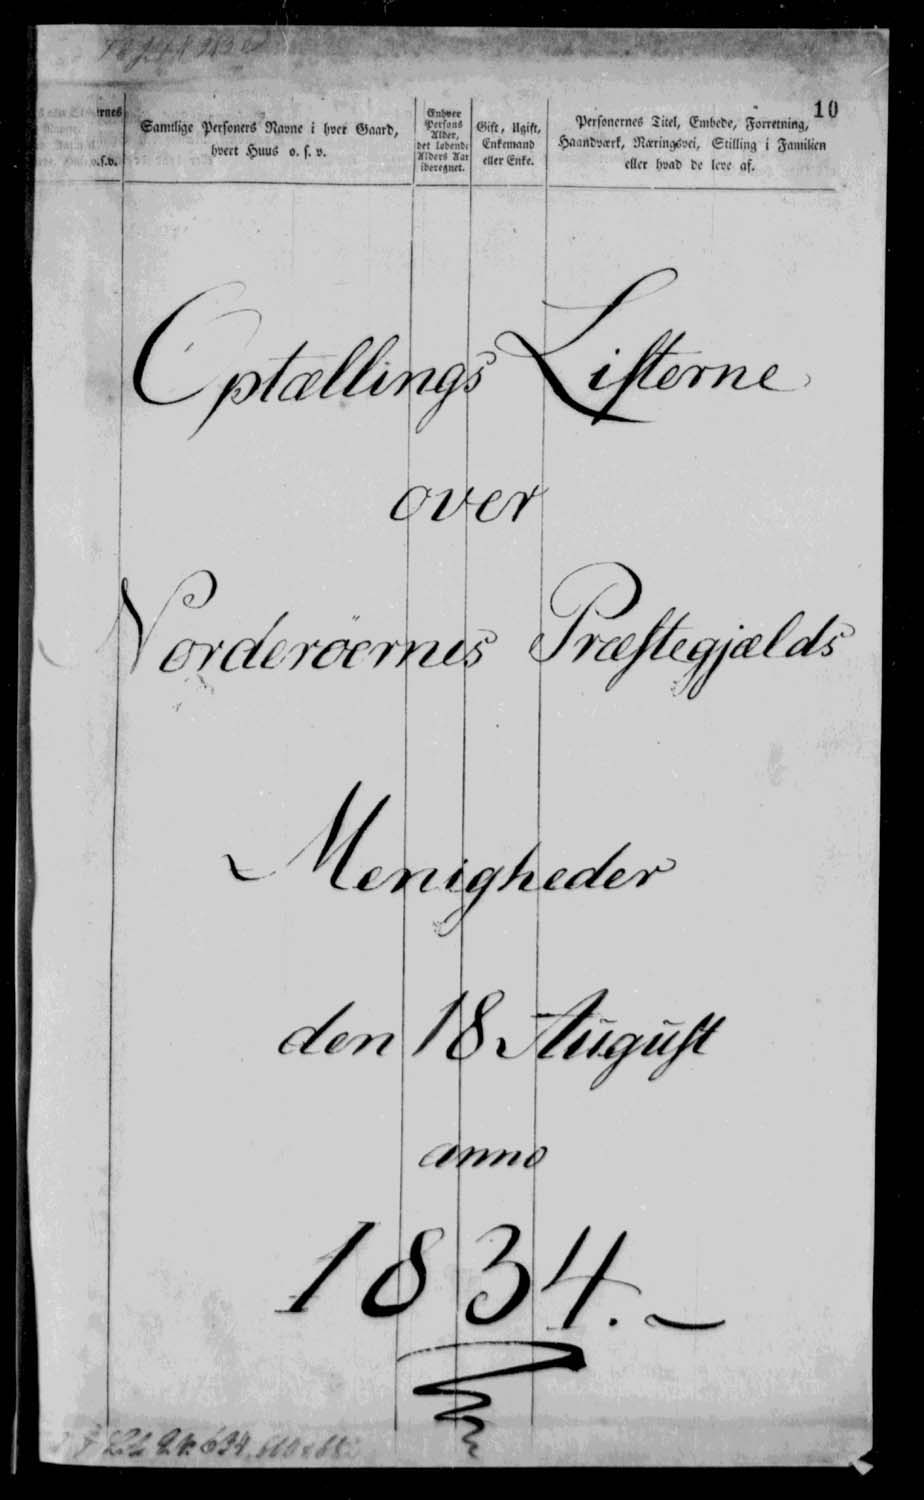 10
Samtlige Personers Navne i hver Gaard,
hvert Huus o. s. v.
Enhver
Persons
Alder,
det løbende
Alders Aar
iberegnet.
Gift, Ugift,
Enkemand
eller Enke.
Personernes Titel, Embede, Forretning,
Haandværk, Næringsvei, Stilling i Familien
eller hvad de leve af.
o.s.v.
Optællings Listerne
over
Norderöernes Præstegjælds
Menigheder
den 18 August
anno
1834.